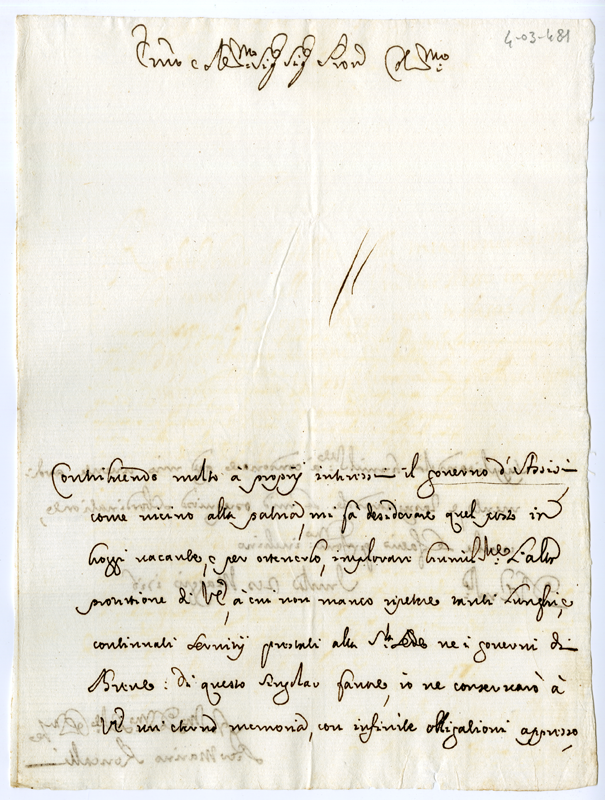 4-03-481
Em̃o e R.mo Sig.r Sig.r Pron̄ Col.mo
Contribuendo molto à proprij interessi il governo d'Assisi
come vicino alla patria, mi fà desiderare quel posto in
hoggi vacante, e per ottenerlo, implorare humilm.te L'alta
protettione di V.E., à cui non manco ripetere tanti Lunghi, e
continuati servitij prestati alla S.ta Sede ne i governi di
Breve: di questo singolar favore, io ne conservarò à
V.E. un'eterna memoria, con infinite obligationi appresso,